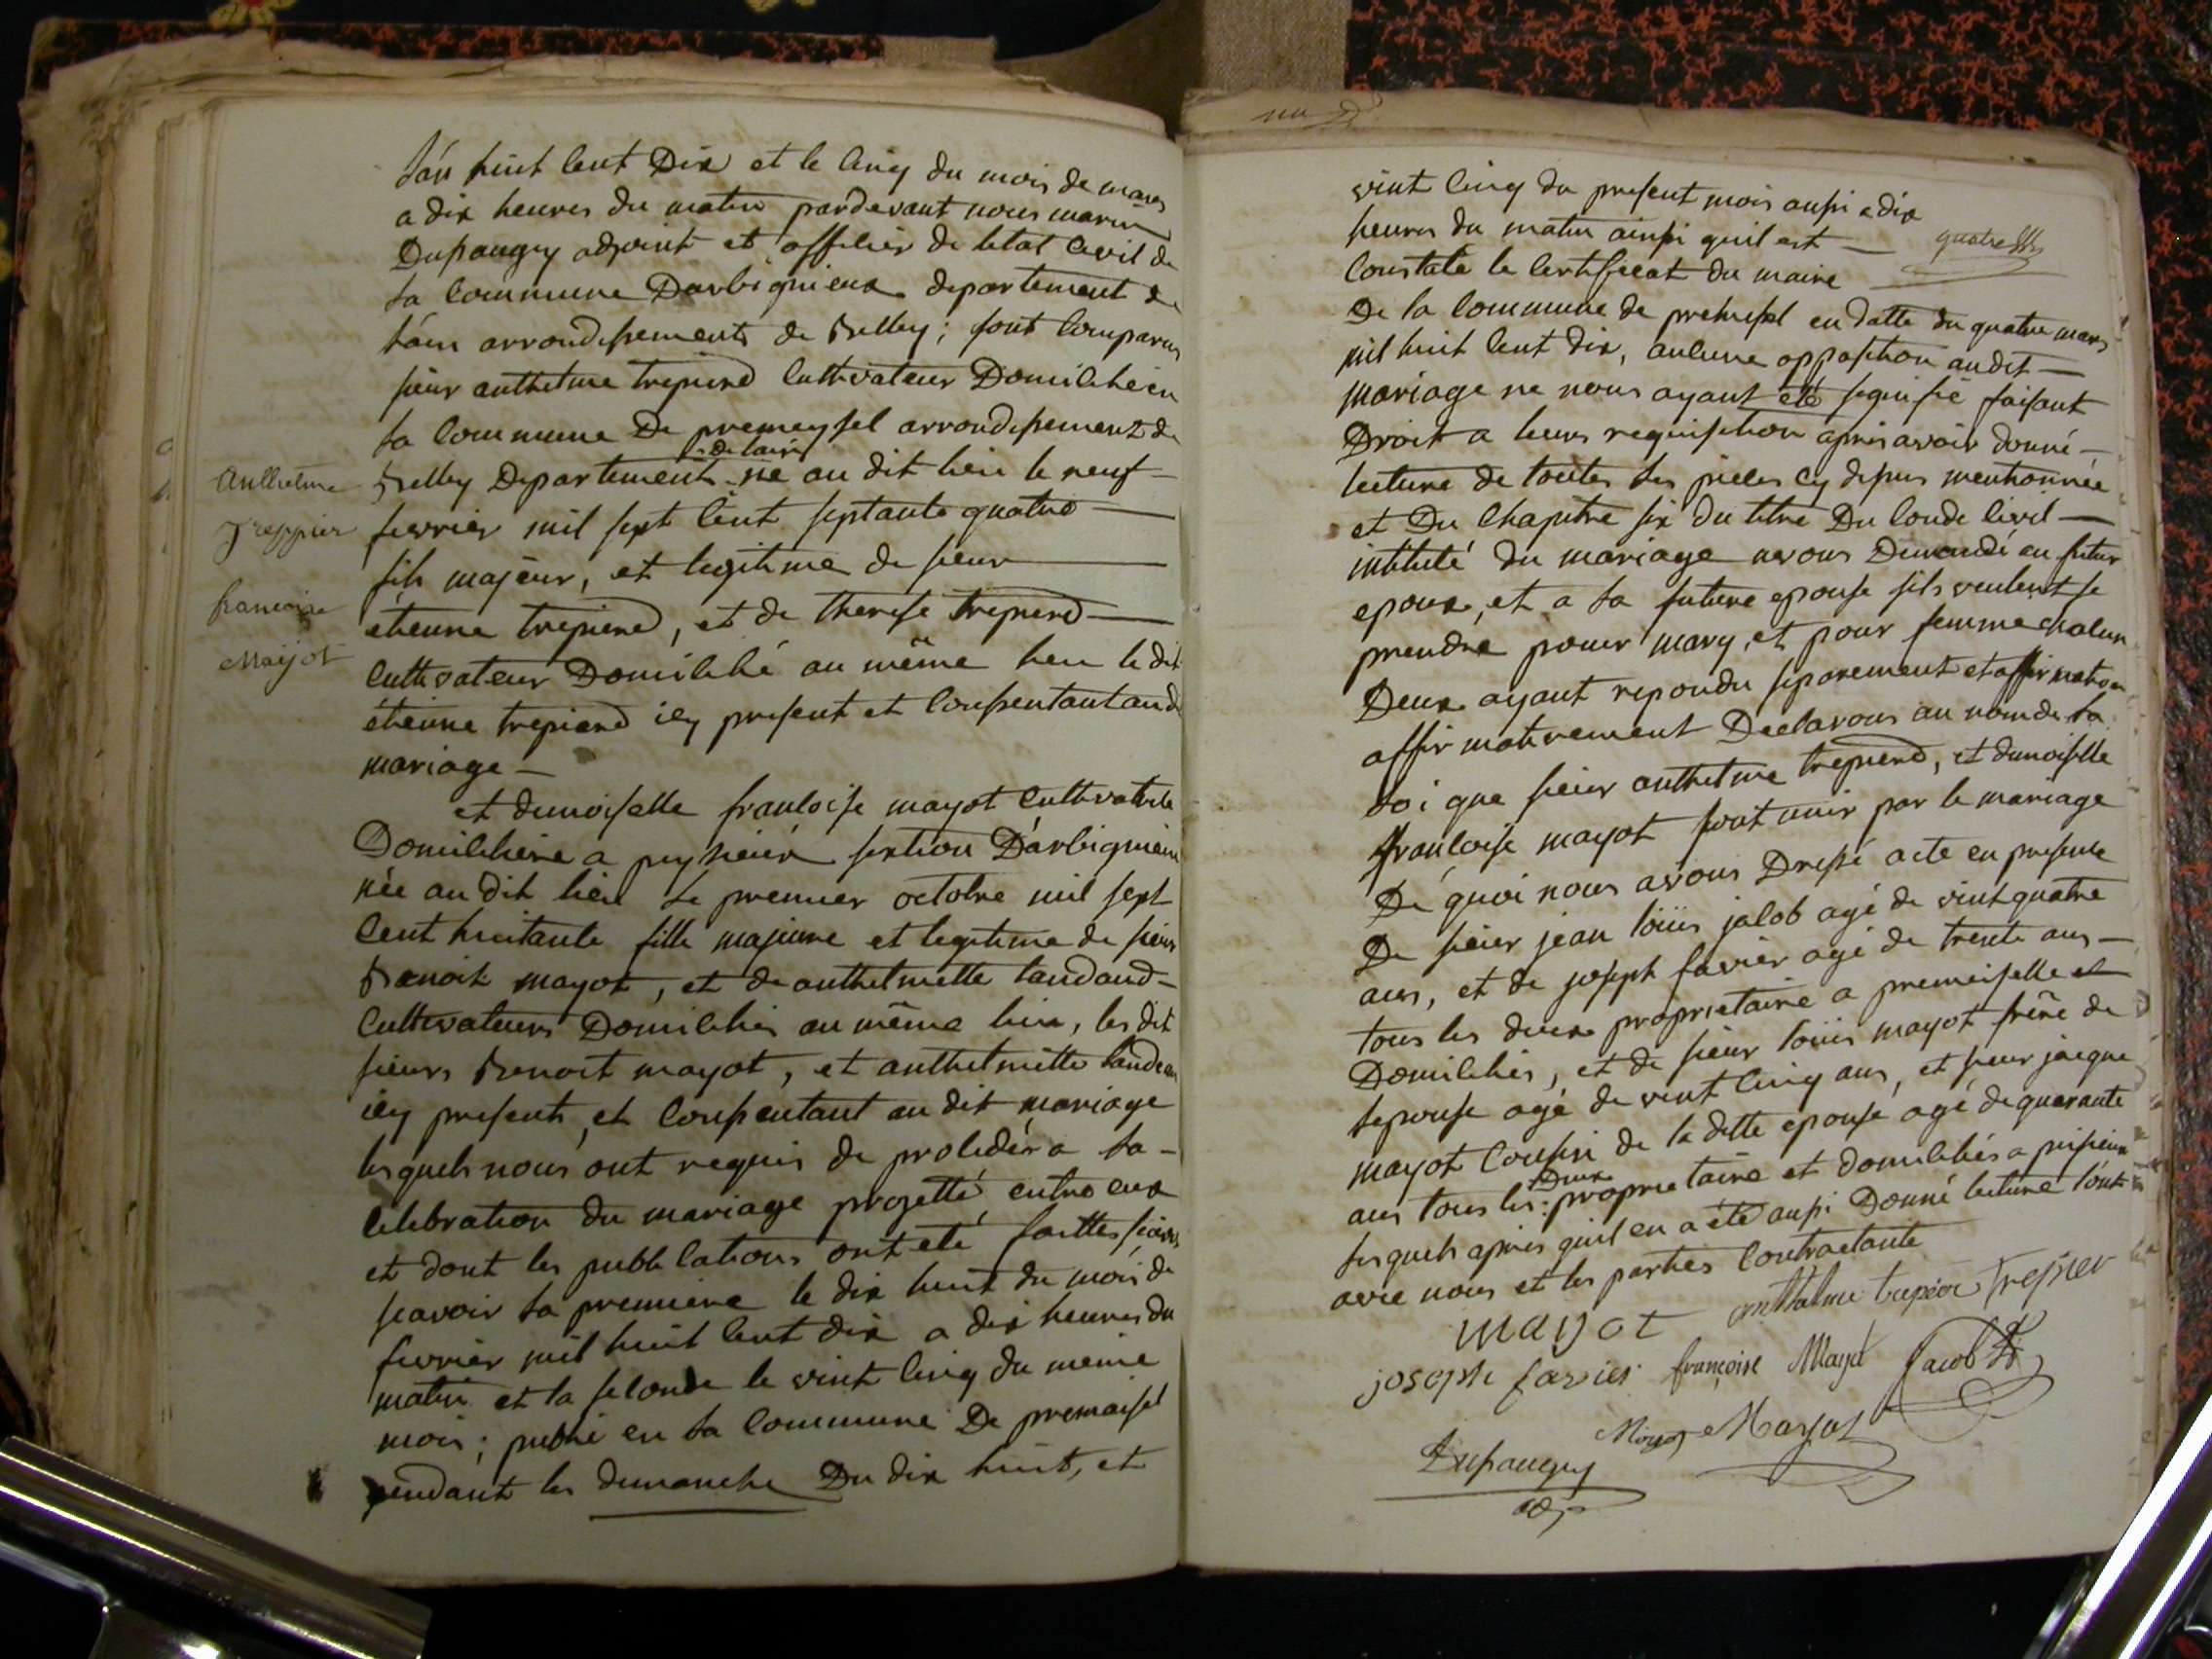 L'an huit Cent Dix et le Cinq du mois de mars
a dix heures du matin pardevant nous marin
Dupaugey adjoint et officier de letat Civil de
la Commune Darbignieux departement de
l'ain arrondissements de Belley; sont Comparus
sieur anthelme trepierd Cultivateur Domicilié en
la Commune De premeysel arrondissement de
Belley Departement de l'ain né au dit lieu le neuf
fevrier mil sept Cent septante quatre
fils majeur, et legitime de sieur
étienne trepierd, et de therese trepierd
Cultivateur Domicilié au même lieu le dit
étienne trepierd icy present et Consentant audit
mariage
et demoiselle francoise mayot Cultivatrice
Domiciliere a peyzieux section D'arbignieux
née au dit lieu le premier octobre mil sept
Cent huitante fille majeure et legitime de sieur
Benoit mayot, et de anthelmette
Cultivateurs Domiciliés au même lieu, les dit
sieurs Benoit mayot, et anthelmette
icy presents, et Consentant au dit mariage
lesquels nous ont requis de proceder a la
Celebration du mariage projetté entre eux
et dont les publications ont eté faittes
scavoir la premiere le dix huit du mois de
fevrier mil huit Cent dix a dix heures du
matin et la seconde le vint Cinq du meme
mois; publié en la Commune De premaisel
pendant les dimanche Du dix huit, et
Anthelme
Treppier
francoise
Mayot
vint Cinq du present mois aussi a dix
heures du matin ainsi quil est
Constate le Certificat du maire
De la Commune de premesel en datte du quatre mars
mil huit Cent dix, aucune opposition audit
mariage ne nous ayant eté signifié faisant
Droit a leurs requisition apres avoir donné
lecture de toutes les pieces cy dessus mentionnée
et Du Chapitre six du titre Du Coude Civil
intitulé du mariage avons Demandé au futur
epoux, et a la future epouse sils veulent se
prendre pour mary, et pour femme chalun
Deux ayant repondu séparement et
affirmativement Declarons au nom de la
Loi que sieur anthelme trepierd, et demoiselle
francoise mayot sont unir par le mariage
De quoi nous avons Dressé acte en presence
De sieur jean loüis jacob agé de vint quatre
ans, et de joseph favier agé de trente ans
tous les deux proprietaire a premeiselle et
Domiciliés, et de sieur loüis mayot frêre de
lepouse agé de vint Cinq ans, et sieur jacque
mayot Cousin de la ditte epouse agé de quarante
ans tous les Deux proprietaire et domiciliés a peisieux
lesquels apres quil en a été aussi Donné lecture l'ont
avec nous et les parties Contractante
mayot anthelme trepier Trepier
joseph favier françoise Mayot Jacob
Mayot Mayot
Dupaugey
adj